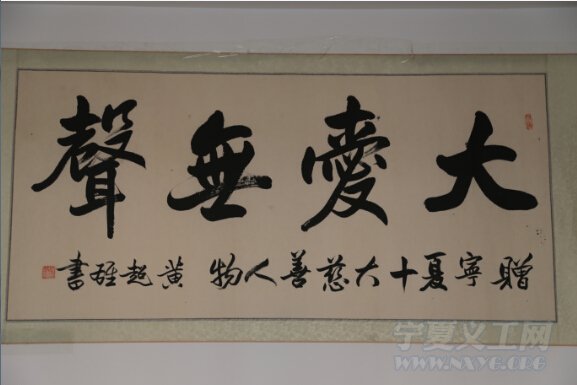 大愛無聲
贈寧夏十大慈善人物 黃超雄書
宁夏义工网
www.nxyg.org